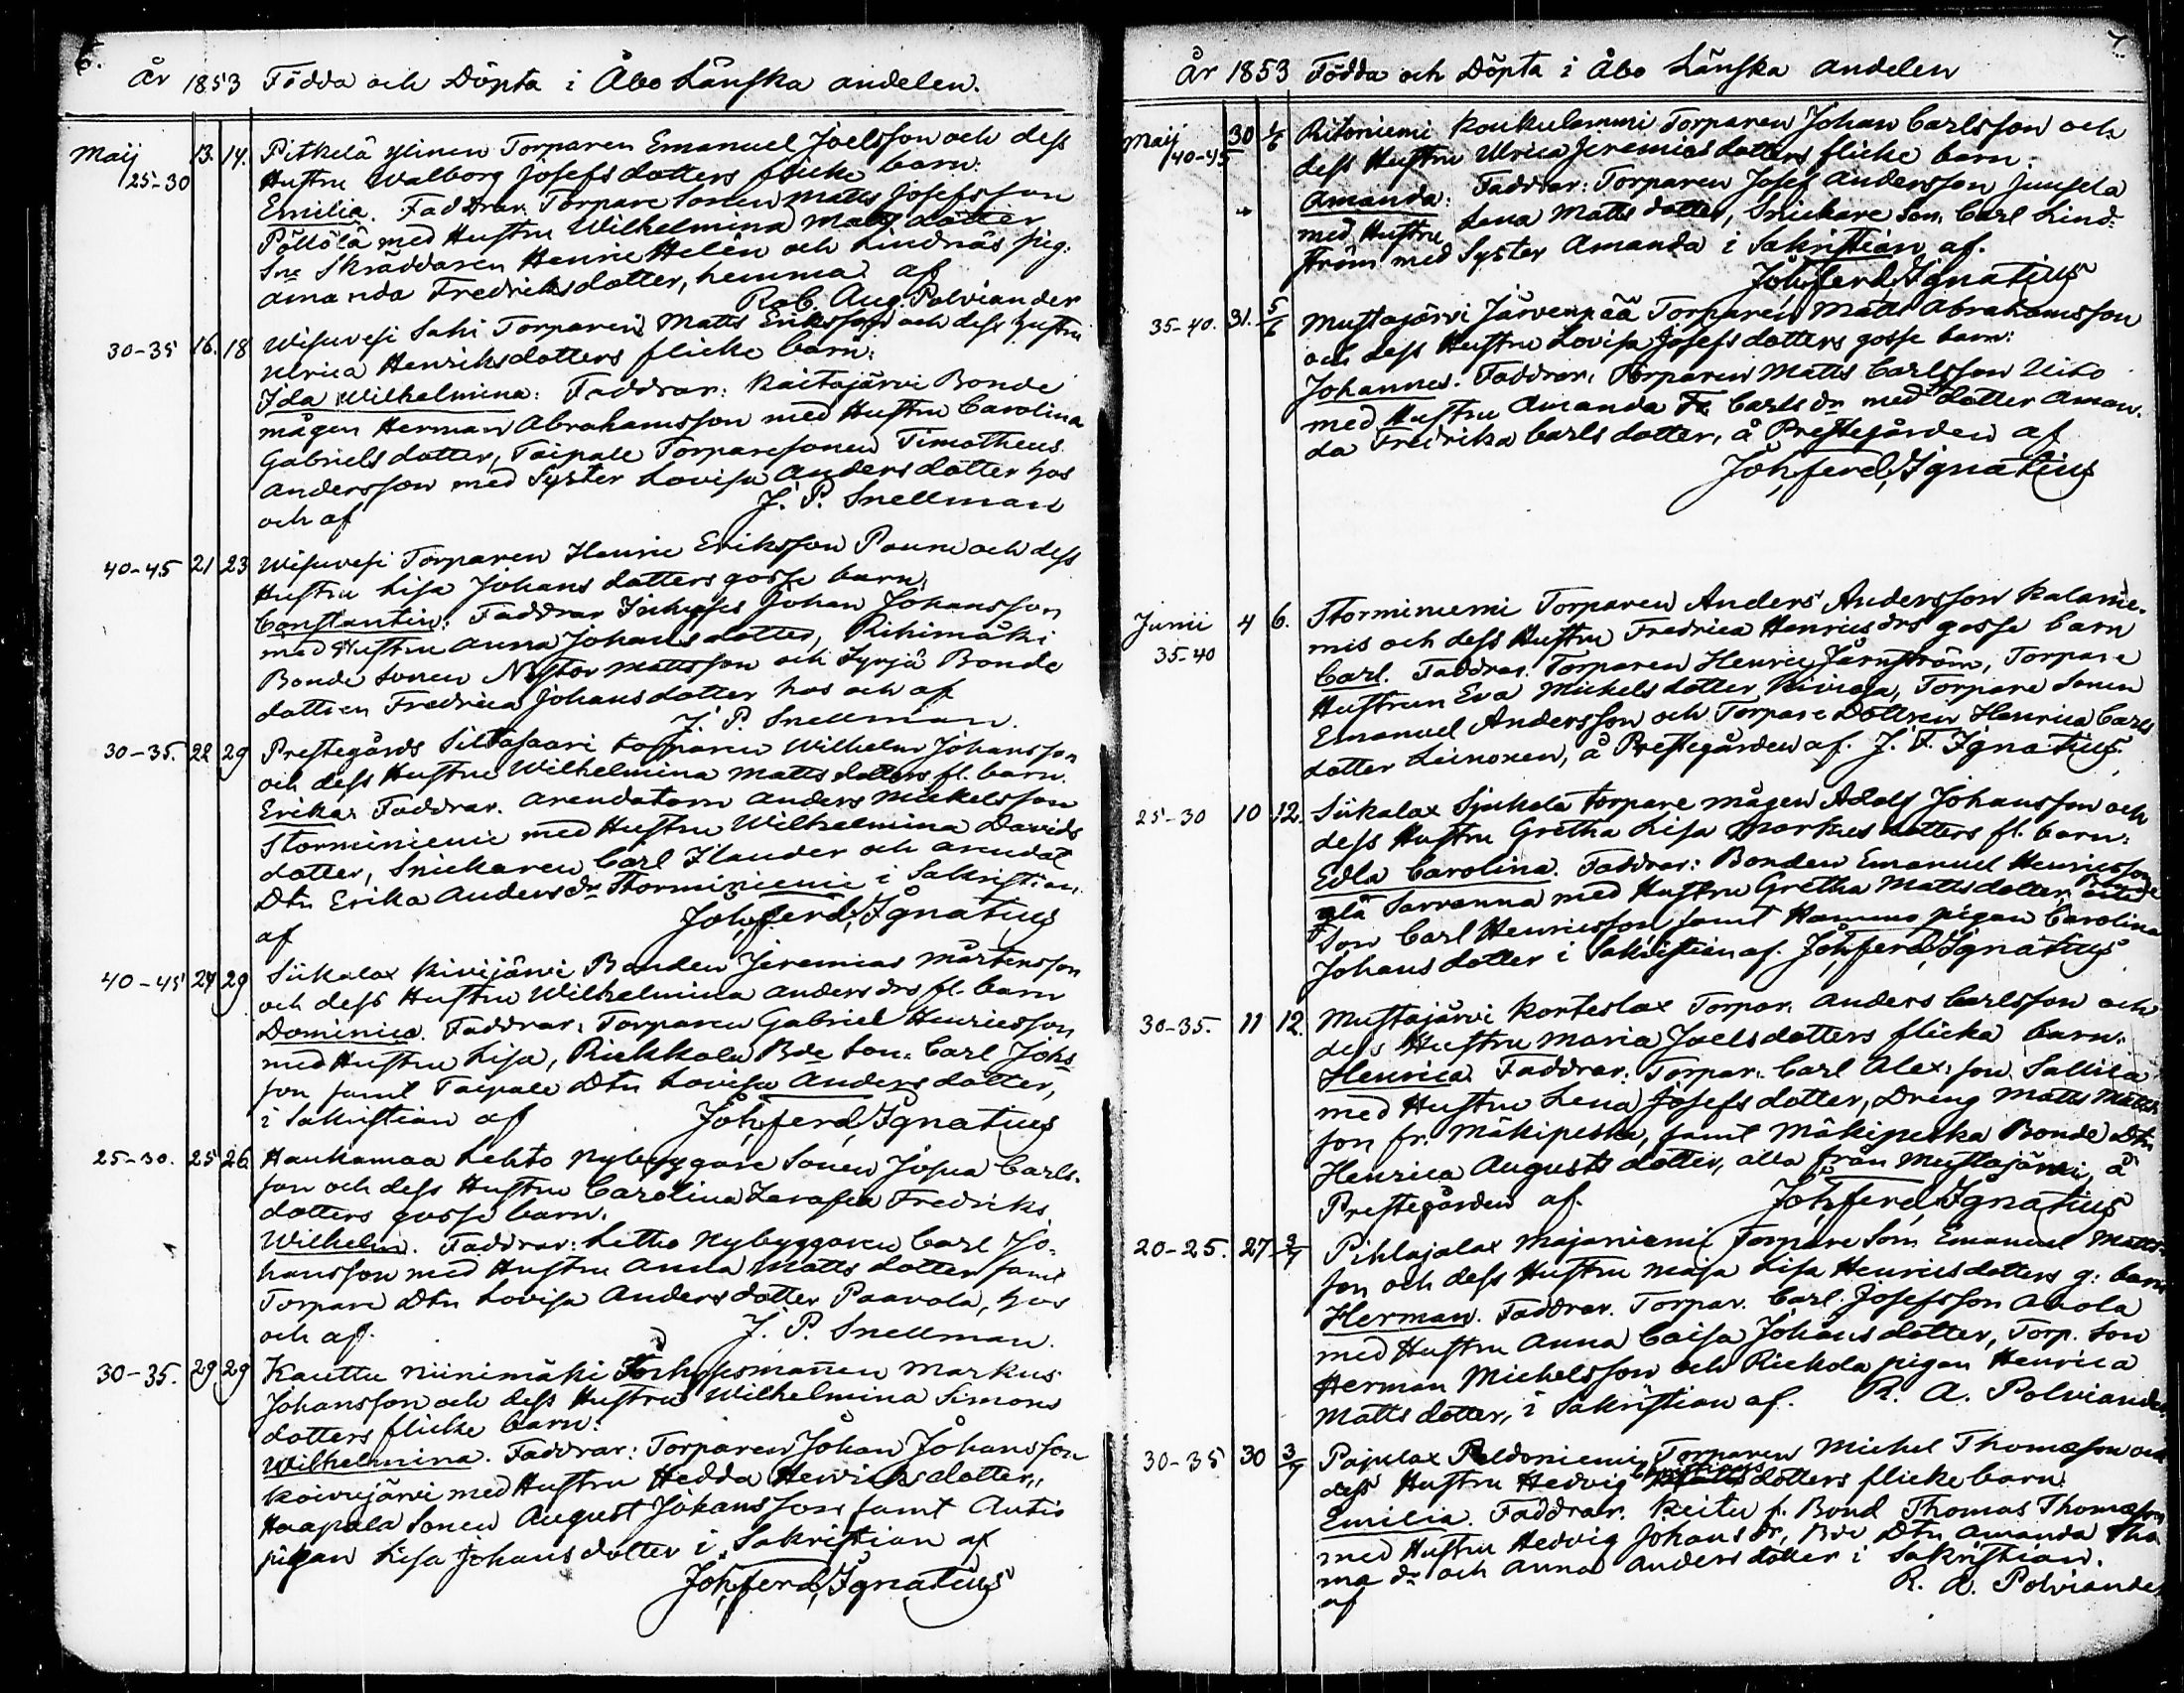 6.
År 1853 Födda och Döpta i Åbo Länska andelen.
Maij 13. 14. Pitkelä ylinen Torparen Emanuel Joelsson och dess
25-30 Hustru Walborg Josefsdotters flicke barn:
Emilia. Faddrar. Torpare Sonen Matts Josefsson
Pöllölä med Hustru Wilhelmina Matts dotter
Sn= Skräddaren Henric Helén och Lindnäs pig:
Amanda Fredriksdotter, hemma af
Rob. Aug. Polviander
30-35 16. 18 Wisuvesi Sahi Torparen Matts Eriksson och dess hustru
Ulrica Henriksdotters flicke barn:
Ida Wilhelmina: Faddrar: Kaitajärvi Bonde
mågen Herman Abrahamsson med Hustru Carolina
Gabriels dotter, Taipale Torparesonen Timotheus
Andersson med Syster Lovisa Anders dotter hos
och af J. P. Snellman
40-45 21 23 Wisuvesi Torparen Henric Eriksson Pauni och dess
Hustru Lisa Johans dotters gosse barn,
Constantin: Faddrar Inhyses Johan Johansson
med Hustru Anna Johans dotter, Rihimäki
Bonde sonen Nestor Mattsson och Syrjä Bonde
dottren Fredrica Johansdotter hos och af
J. P. Snellman.
30-35. 22 29 Prestegårds Siltasaari torparen Wilhelm Johansson
och dess Hustru Wilhelmina Matts dotters fl. barn.
Erika: Faddrar. Arendatorn Anders Mickelsson
Storminiemi med Hustru Wilhelmina Davids
dotter, Snickaren Carl Ilander och arendat
Dtn Erika Anders dr Storminiemi i Sakristian
af Joh. Ferd. Ignatius
40-45 24 29 Siikalax Kivijärvi Bonden Jeremias Mårtensson
och dess Hustru Wilhelmina Anders drs fl. barn
Dominica. Faddrar: Torparen Gabriel Henricsson
med Hustru Lisa, Riekkola Bde Son: Carl Johs
son samt Taipale Dtn Lovisa Anders dotter,
i Sakristian af Joh. Ferd. Ignatius
25-30. 25 26. Haukamaa Lehto Nybyggare Sonen Josua Carls-
son och dess Hustru Carolina Serafia Fredriks
dotters gosse barn.
Wilhelm. Faddrar: Lehto Nybyggaren Carl Jo-
hansson med Hustru Anna Matts dotter samt
Torpare Dtn Lovisa Anders dotter Paavola, hos
och af. J. P. Snellman.
30-35. 29 29 Kauttu Niinimäki Inhysesmannen Markus
Johansson och dess Hustru Wilhelmina Simons
dotters flicke barn:
Wilhelmina. Faddrar: Torparen Johan Johansson
Koivujärvi med Hustru Hedda Henriksdotter,
Haapala Sonen August Johansson samt Autio
pigan Lisa Johans dotter i Sakristian af
Joh. Ferd. Ignatius
7.
År 1853 Födda och Döpta i Åbo Länska andelen
Maij 30 1/6 Ritoniemi Koukulammi Torparen Johan Carlsson och
40-45 dess Hustru Ulrica Jeremias dotters flicke barn:
Amanda: Faddrar: Torparen Josef Andersson Juusela
med Hustru Lena Matts dotter, Snickare Son. Carl Lind-
ström med Syster Amanda i Sakristian af.
Joh. Ferd. Ignatius
35-40. 31. 5/6 Mustajärvi Järvenpää Torparen Matts Abrahamsson
och dess Hustru Lovisa Josefs dotters gosse barn:
Johannes. Faddrar: Torparen Matts Carlsson Uito
med Hustru Amanda Carls dr med dotter Aman-
da Fredrika Carls dotter, å Prestegården af
Joh. Ferd. Ignatius
Junii 4 6. Storminiemi Torparen Anders Andersson Kalanie-
35-40 mis och dess Hustru Fredrica Henrics drs gosse barn
Carl. Faddrar. Torparen Henric Järnström, Torpare
Hustrun Eva Michels dotter Kivioja, Torpare Sonen
Emanuel Andersson och Torpare Dottren Henrica Carls
dotter Leinonen, å Prestegården af. J. F. Ignatius.
25-30 10 12. Siikalax Sjukola torpare mågen Adolf Johansson och
dess Hustru Gretha Lisa Markus dotters fl. barn:
Edla Carolina. Faddrar: Bonden Emanuel Henricsson
ylä Savranna med Hustru Gretha Matts dotter, Bonde
Son Carl Henricsson samt Hommo pigan Carolina
Johans dotter i Sakristian af. Joh. Ferd. Ignatius
30-35. 11 12. Mustajärvi Korteslax Torpar. Anders Carlsson och
dess Hustru Maria Joels dotters flicka barn.
Henrica. Faddrar: Torpar. Carl Alex: son Sallila
med Hustru Lena Josefs dotter, Dreng Matts Matts
son fr. Mäkipeska, samt Mäkipeska Bonde Dtn
Henrica Augusts dotter, alla från Mustajärvi, å
Prestegården af. Joh. Ferd. Ignatius
20-25. 27 3/7 Pihlajalax Majaniemi Torpare Son Emanuel Matts-
son och dess Hustru Maja Lisa Henricsdotters g: barn
Herman. Faddrar. Torpar. Carl Josefsson Avola
med Hustru Anna Caisa Johans dotter, Torp. Son
Herman Michelsson och Riekola pigan Henrica
Matts dotter, i Sakristian af. R. A. Polviander
30-35 30 3/7 Pajulax Peldoniemi Torparen Michel Thomasson och
dess Hustru Hedvig dotters flicke barn.
Emilia. Faddrar. Keitu f. Bond Thomas Thomasson
med Hustru Hedvig Johans dr, Bde Dtn Amanda Tho
ma dr och Anna Anders dotter i Sakristian.
af R. A. Polviander